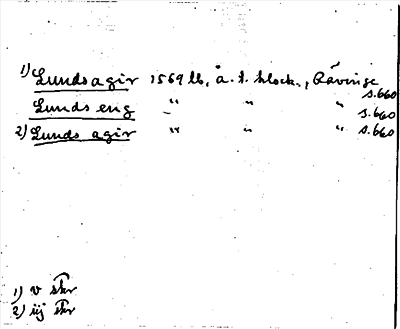 1) Lundsagir 1569 lb, å. t. klock., Råvinge s.660
Lunds eng " " " s.660
2) Lunds agir " " " s.660
1) v skr
2) iij skr